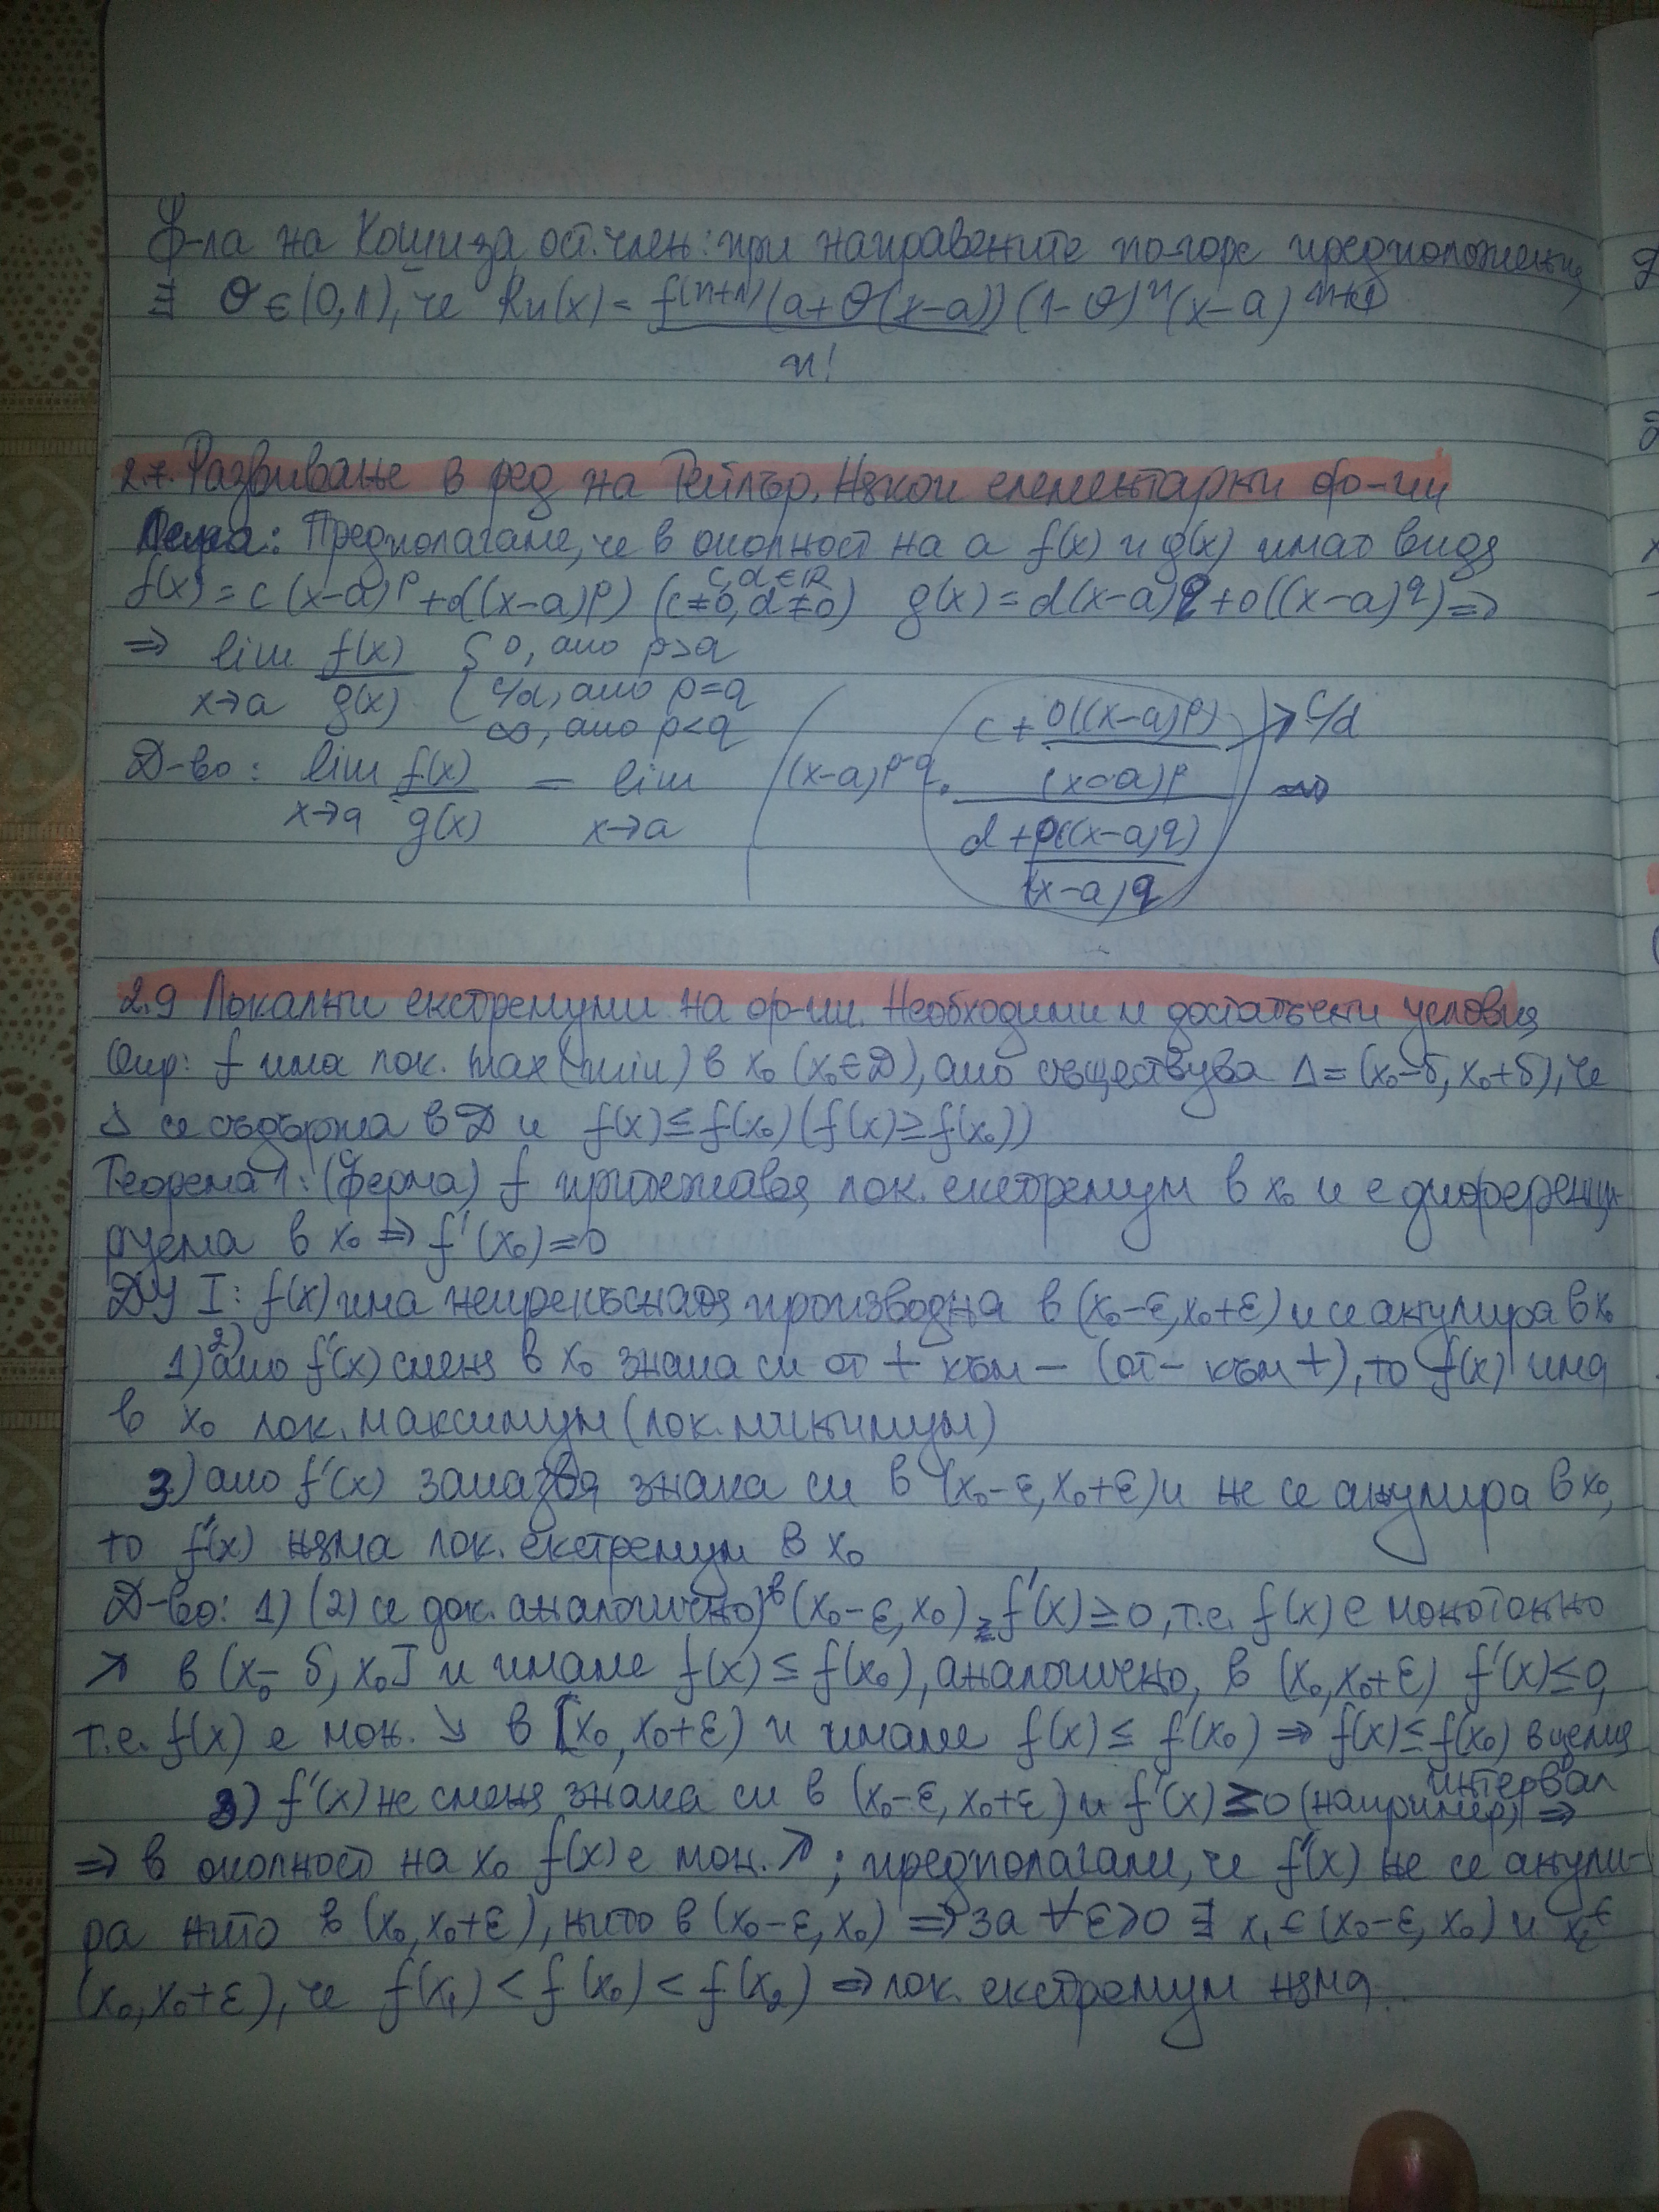 Ф-ла на Коши за ост. член: при направените по-горе предположения
∃ θ∈(0,1), че Rn(x) = f^(n+1)(a+θ(x-a)) (1-θ)^n (x-a)^n+1
n!
2.7. Развиване в ред на Тейлър. Някои елементарни ф-ии
Лема: Предполагаме, че в околност на a f(x) и g(x) имат вида
c,d∈R
f(x) = c(x-a)^p + d((x-a)^p) (c≠0, d≠0) g(x) = d(x-a)^q + o((x-a)^q) =>
=> lim f(x) { 0, ако p>q
x→a g(x) c/d, ако p=q
∞, ако p<q
Д-во: lim f(x) = lim ((x-a)^p-q . c + o((x-a)^p) → c/d
x→a g(x) x→a (x-a)^p
d + o((x-a)^q)
(x-a)^q
2.9 Локални екстремуми на ф-ии. Необходими и достатъчни условия
Опр: f има лок. max (min) в x₀ (x₀∈D), ако съществува Δ = (x₀-δ, x₀+δ), че
Δ се съдържа в D и f(x) ≤ f(x₀) (f(x) ≥ f(x₀))
Теорема 1: (Ферма) f притежава лок. екстремум в x₀ и е диференци-
руема в x₀ => f'(x₀) = 0
ДУ I: f(x) има непрекъсната производна в (x₀-ε, x₀+ε) и се анулира в x₀
1) 2) ако f'(x) сменя в x₀ знака си от + към - (от - към +), то f(x) има
в x₀ лок. максимум (лок. минимум)
3) ако f'(x) запазва знака си в (x₀-ε, x₀+ε) и не се анулира в x₀,
то f(x) няма лок. екстремум в x₀
Д-во: 1) (2) се док. аналогично) в (x₀-ε, x₀) f'(x) ≥ 0, т.е. f(x) е монотонно
↗ в (x₀-δ, x₀] и имаме f(x) ≤ f(x₀), аналогично, в (x₀, x₀+ε) f'(x) ≤ 0,
т.е. f(x) е мон. ↘ в [x₀, x₀+ε) и имаме f(x) ≤ f(x₀) => f(x) ≤ f(x₀) в целия
интервал
3) f'(x) не сменя знака си в (x₀-ε, x₀+ε) и f'(x) ≥ 0 (например) =>
=> в околност на x₀ f(x) е мон. ↗; предполагаме, че f'(x) не се анули-
ра нито в (x₀, x₀+ε), нито в (x₀-ε, x₀) => за ∀ε>0 ∃ x₁∈(x₀-ε, x₀) и x₂∈
(x₀, x₀+ε), че f(x₁) < f(x₀) < f(x₂) => лок. екстремум няма.